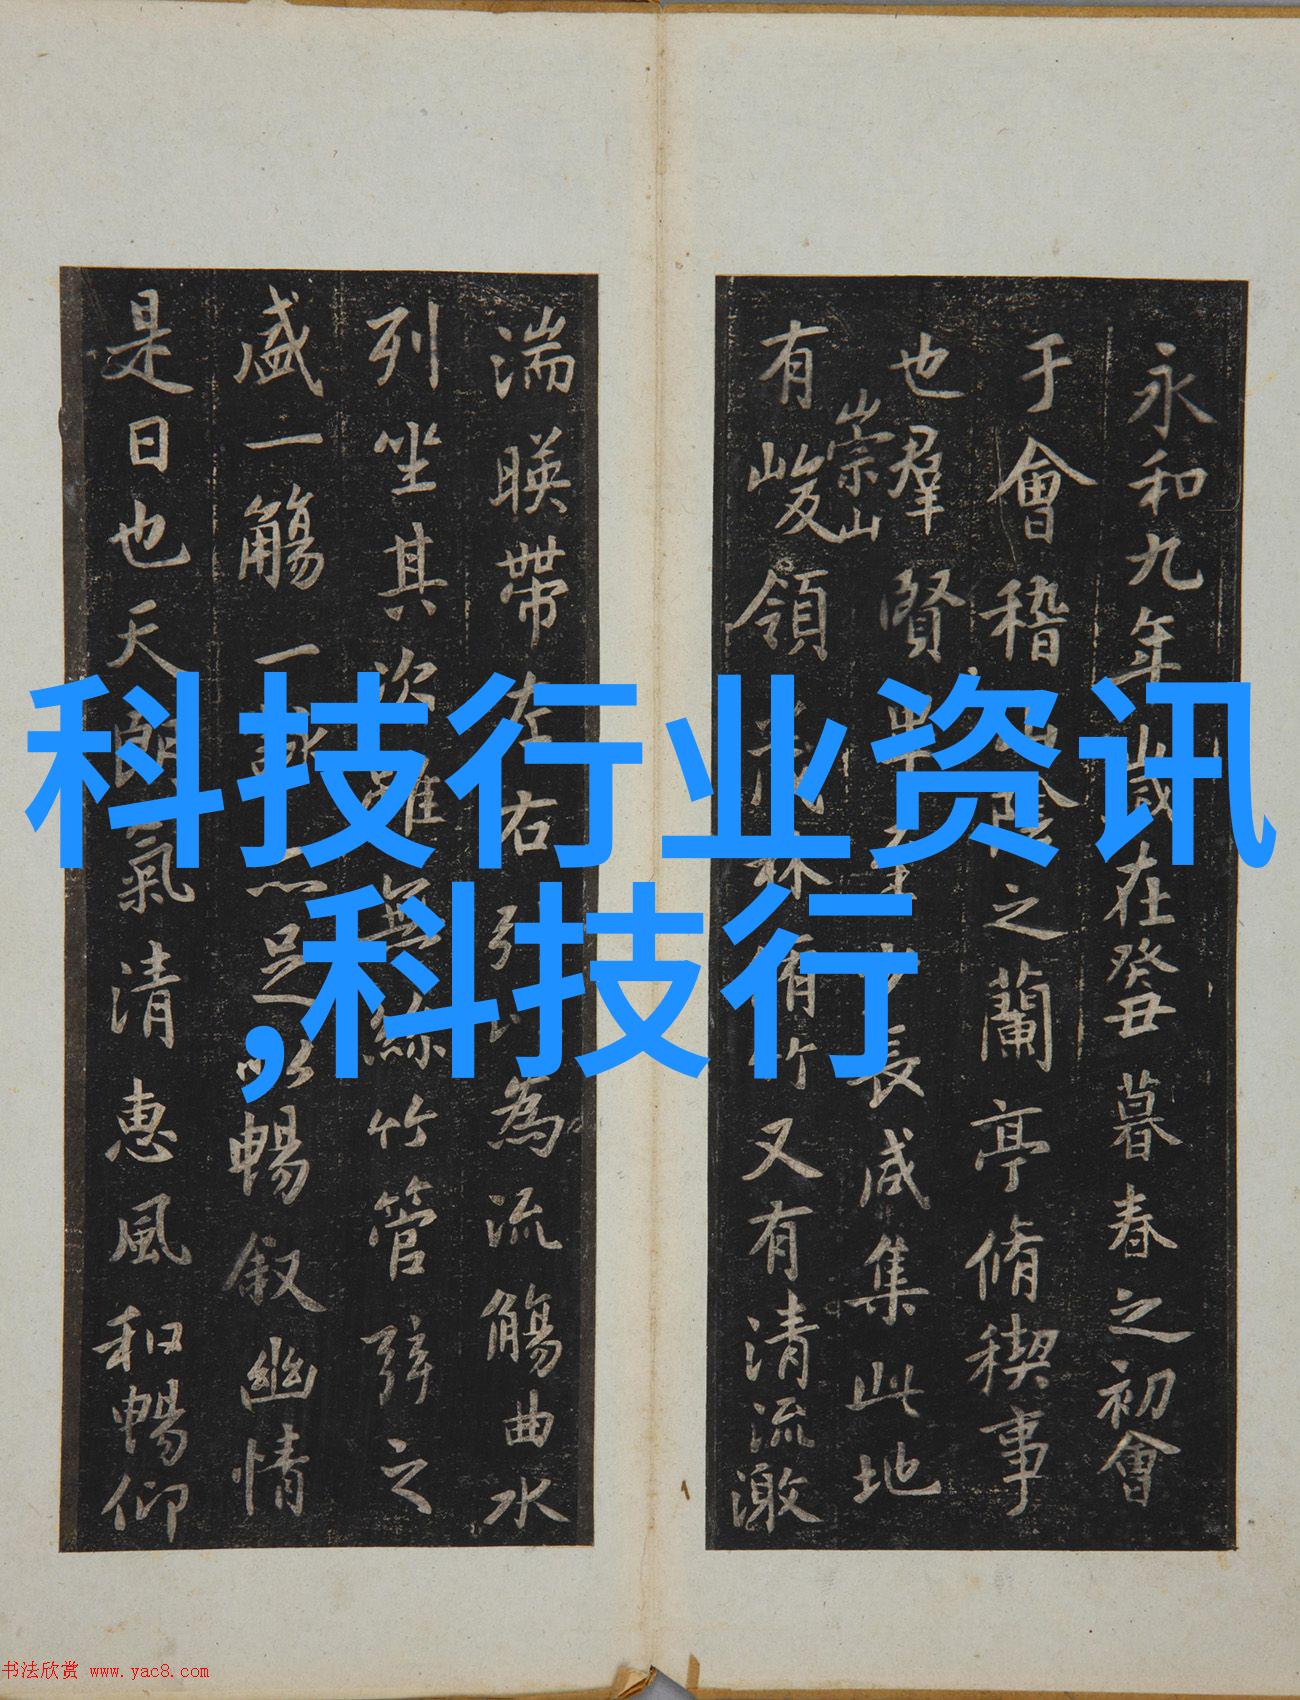 科技行业资讯
,科技行
永和九年歲在癸丑暮春之初會
于會稽山陰之蘭亭脩稧事
也羣賢畢至少長咸集此地
崇山
有峻領茂林脩竹又有清流激
湍暎帶左右引以為流觴曲水
列坐其次雖無絲竹管弦之
盛一觴一詠亦足以暢叙幽情
是日也天朗氣清惠風和暢仰
书法欣赏 www.yac8.com